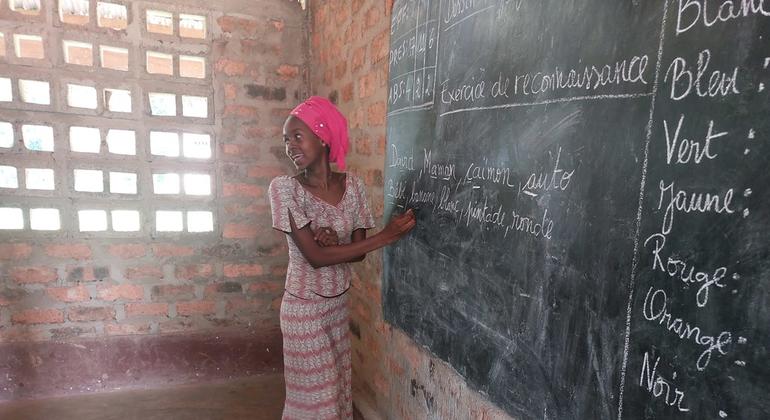 PRES 7
ABS
Exercice de reconnaissance
David, Maman, caïmon, auto
Bébé, banane, blanc, pintade, ronde
Blanc
Bleu :
Vert :
Jaune :
Rouge :
Orange :
Noir :